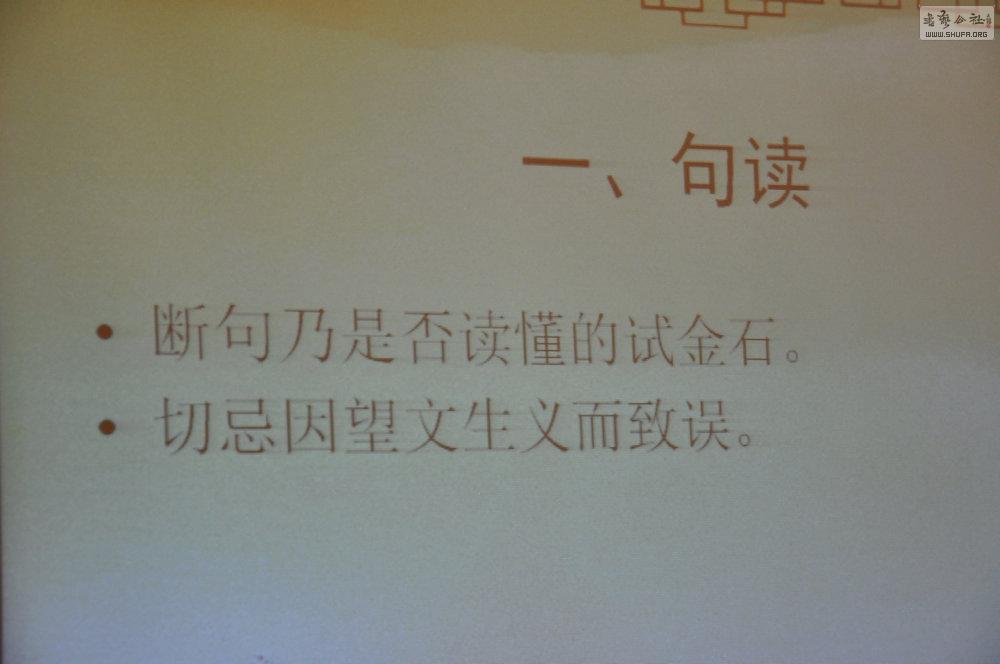 书艺公社
WWW.SHUFA.ORG
一、句读
• 断句乃是否读懂的试金石。
• 切忌因望文生义而致误。